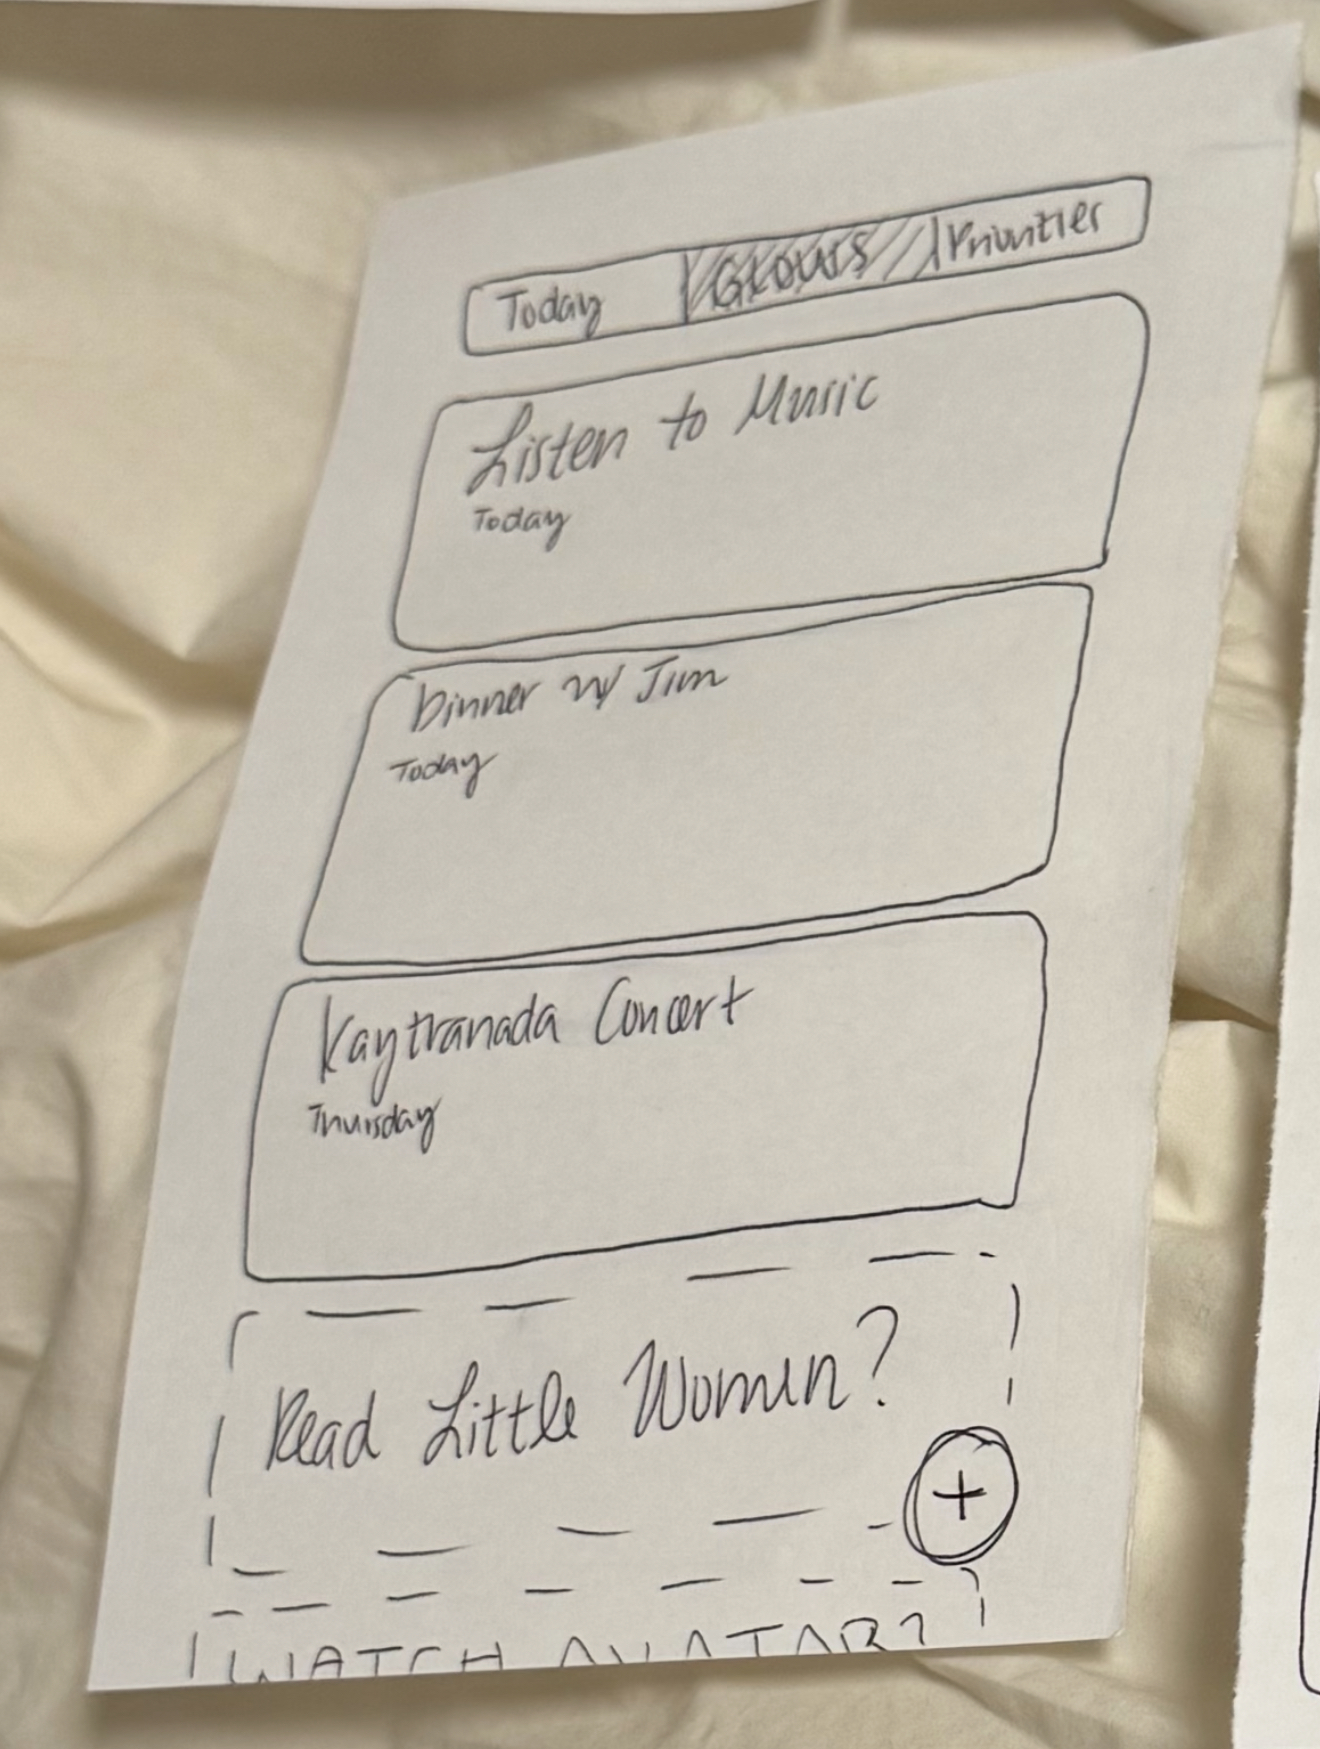 Today Groups Priorities
Listen to Music
Today
Dinner w/ Jim
Today
Kaytranada Concert
Thursday
Read Little Women?
+
WATCH AVATAR?